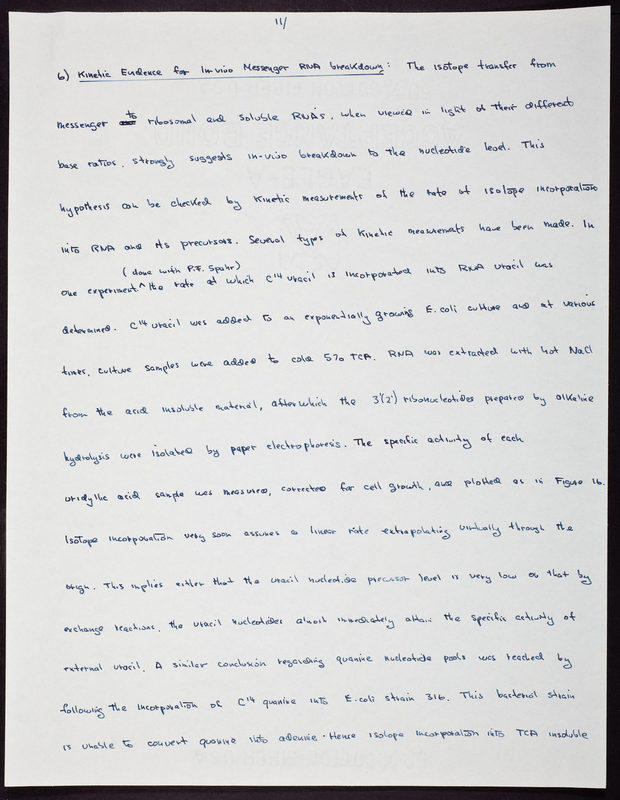 11/
6) Kinetic Evidence for In-vivo Messenger RNA breakdown: The isotope transfer from
messenger to ribosomal and soluble RNAs, when viewed in light of their different
base ratios, strongly suggests in-vivo breakdown to the nucleotide level. This
hypothesis can be checked by kinetic measurements of the rate of isotope incorporation
into RNA and its precursors. Several types of kinetic measurements have been made. In
(done with P.F. Spahr)
one experiment ^ the rate at which C14 uracil is incorporated into RNA uracil was
determined. C14 uracil was added to an exponentially growing E. coli culture and at various
times, culture samples were added to cold 5% TCA. RNA was extracted with hot NaCl
from the acid insoluble material, after which the 3'(2') ribonucleotides prepared by alkaline
hydrolysis were isolated by paper electrophoresis. The specific activity of each
uridylic acid sample was measured, corrected for cell growth, and plotted as in Figure 16.
Isotope incorporation very soon assumes a linear rate extrapolating virtually through the
origin. This implies either that the uracil nucleotide precursor level is very low or that by
exchange reactions, the uracil nucleotides almost immediately attain the specific activity of
external uracil. A similar conclusion regarding guanine nucleotide pools was reached by
following the incorporation of C14 guanine into E. coli strain 316. This bacterial strain
is unable to convert guanine into adenine. Hence isotope incorporation into TCA insoluble